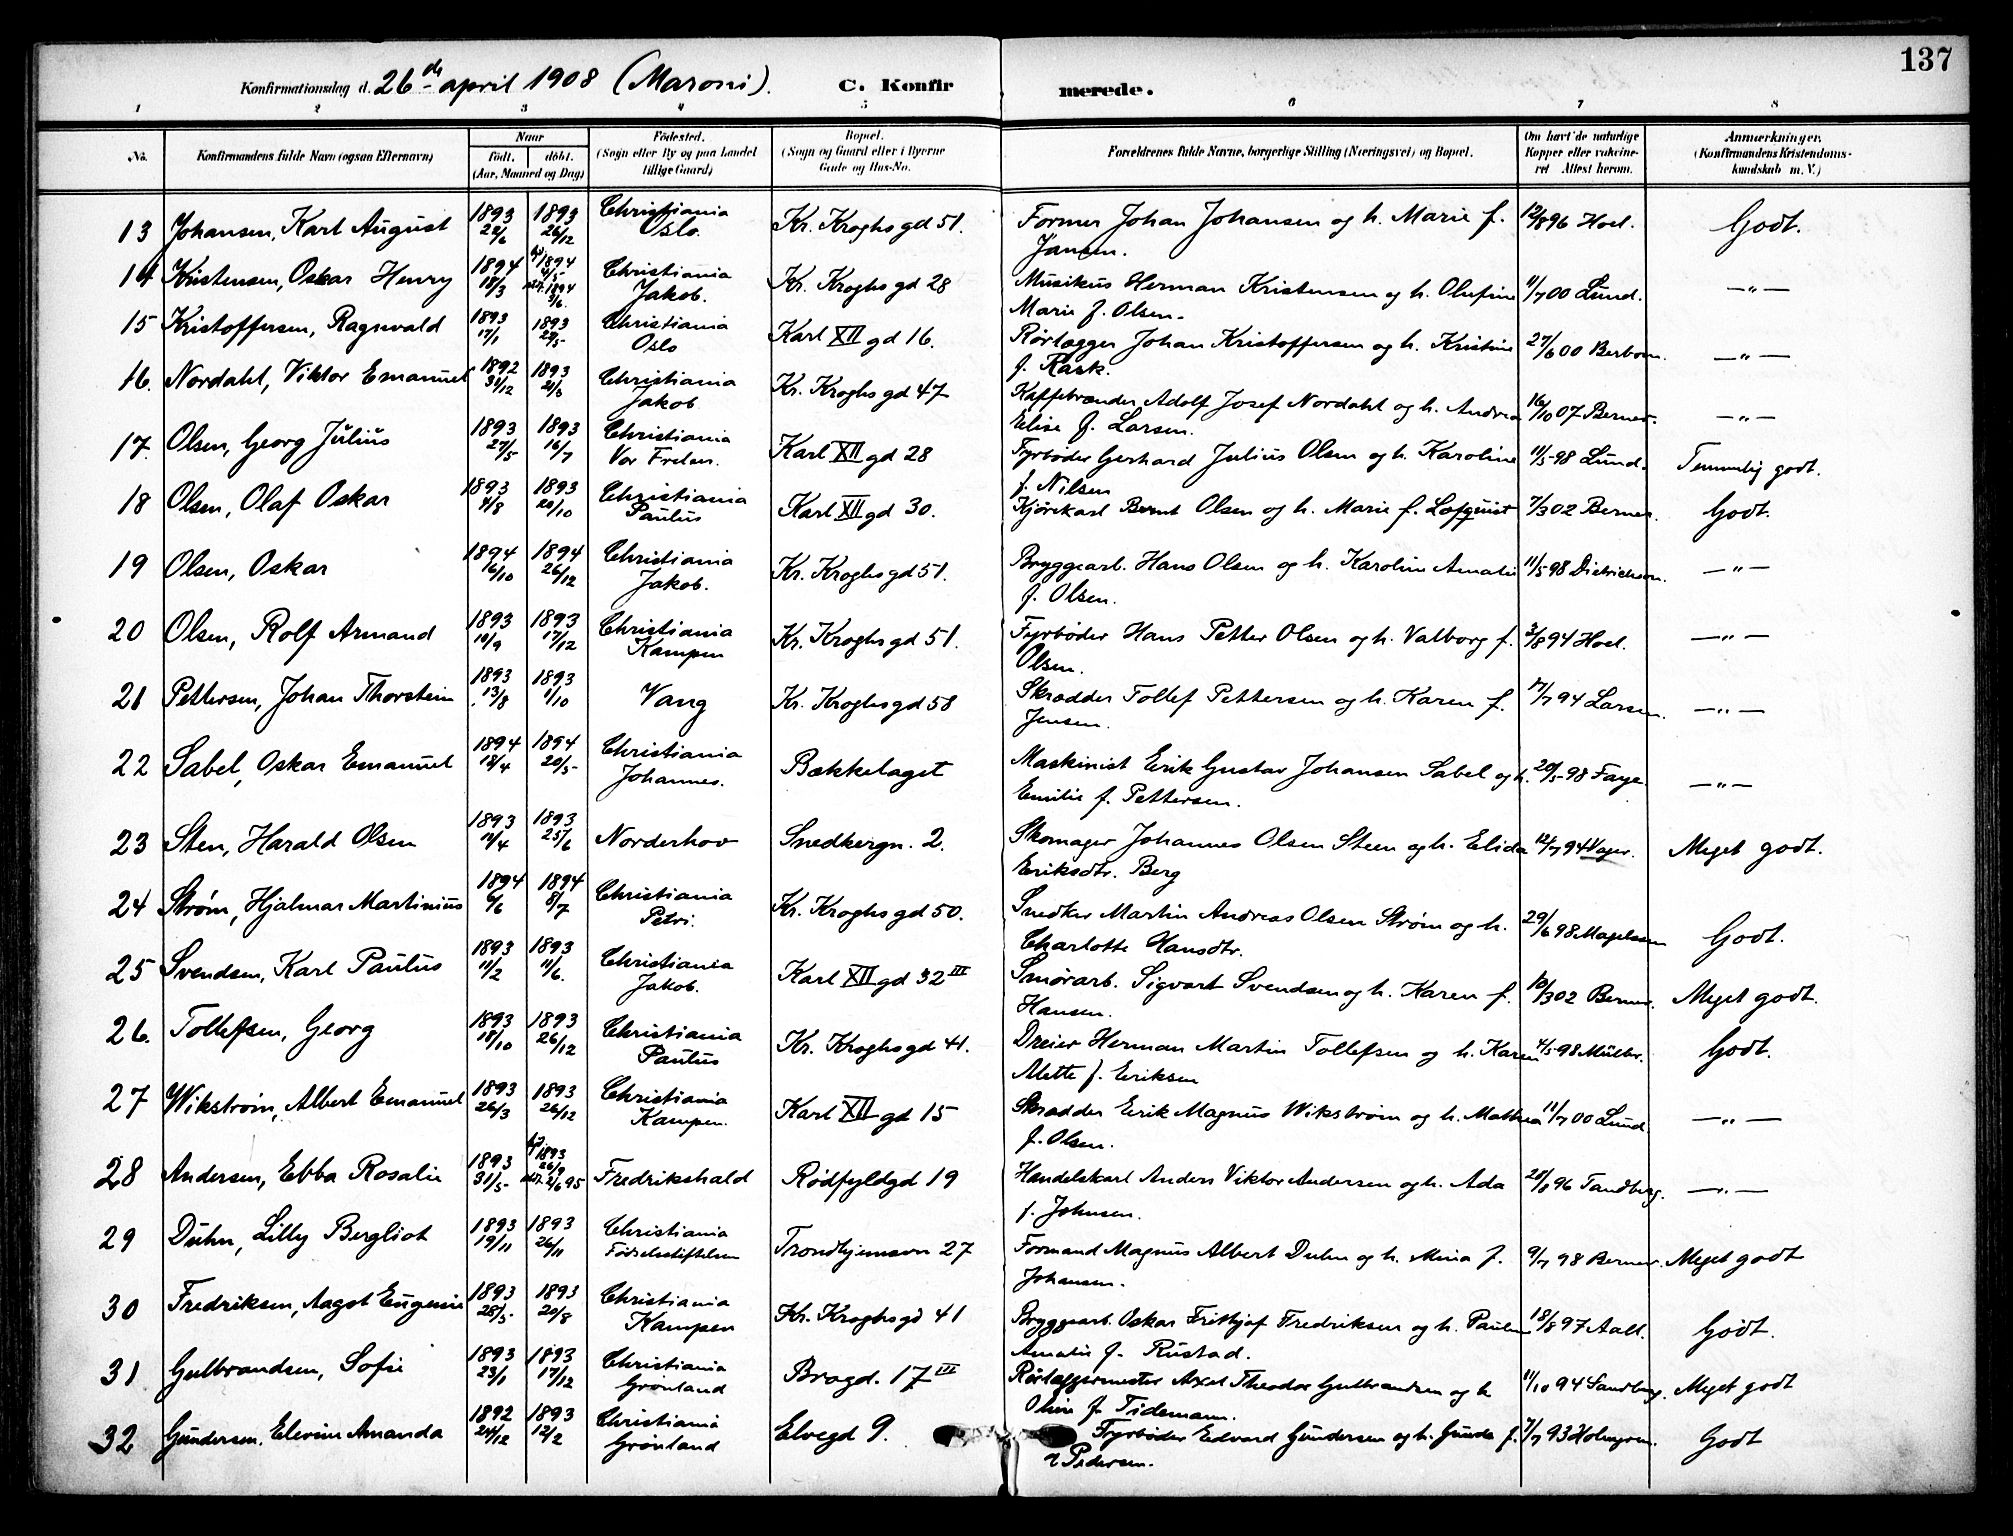 137
Konfirmationsdag d. 26de april 1908 (Maroni). C. Konfirmerede.
1 2 3 4 5 6 7 8
No. Konfirmandens fulde Navn (ogsaa Efternavn) Naar født. døbt. (Aar, Maaned og Dag) Fødested. (Sogn eller By og paa Landet tillige Gaard) Bopæl. (Sogn og Gaard eller i Byerne Gade og Hus-No. Forældrenes fulde Navne, borgerlige Stilling (Næringsvei) og Bopæl. Om havt de naturlige Kopper eller vakcineret Attest herom. Anmærkninger. (Konfirmandens Kristendomskundskab m. V.)
13 Johansen, Karl August 1893 22/6 1893 26/12 Christiania Oslo. Kr. Kroghsgd 51. Former Johan Johansen og h. Marie f. Jansen. 12/8 96 Hoel. Godt.
14 Kristensen, Oskar Henry 1894 18/3 1894 4/5 1894 3/6 Christiania Jakob. Kr. Kroghsgd 28 Musikus Herman Kristensen og h. Olufine Marie f. Olsen. 11/7 00 Lund. —"—
15 Kristoffersen, Ragnvald 1893 17/1 1893 29/5 Christiania Oslo Karl XII gd 16. Rørlægger Johan Kristoffersen og h. Kristine f. Rask. 27/6 00 —"—
16. Nordahl, Viktor Emanuel 1892 31/12 1893 21/3 Christiania Jakob Kr. Kroghsgd 47 Kaffebrænder Adolf Josef Nordahl og h. Andrea Elise f. Larsen. 16/10 07 Berner. —"—
17. Olsen, Georg Julius 1893 27/5 1893 16/7 Christiania Vor Frelser. Karl XII gd 28 Fyrbøder Gerhard Julius Olsen og h. Karoline f. Nilsen 11/5 98 Lund. Temmelig godt.
18 Olsen, Olaf Oskar 1893 4/8 1893 20/10 Christiania Paulus Karl XII gd 30. Kjørekarl Bernt Olsen og h. Marie f. Lofquist 7/3 02 Berner. Godt.
19 Olsen, Oskar 1894 6/10 1894 26/12 Christiania Jakob. Kr. Kroghsgd 51. Bryggearb. Hans Olsen og h. Karoline Amalie f. Olsen. 11/5 98 Dietrichson. —"—
20 Olsen, Rolf Armand 1893 10/9 1893 17/12 Christiania Kampen Kr. Kroghsgd 51. Fyrbøder Hans Petter Olsen og h. Valborg f. Olsen. 3/8 94 Hoel. —"—
21 Pettersen, Johan Thorstein 1893 13/8 1893 1/10 Vang Kr. Kroghsgd 58 Skrædder Tollef Pettersen og h. Karen f. Jensen. 17/7 94 Larsen. —"—
22 Sabel, Oskar Emanuel 1894 18/4 1894 20/5 Christiania Johannes. Bækkelaget Maskinist Erik Gustav Johansen Sabel og h. Emilie f. Pettersen. 20/5 98 Faye. —"—
23 Sten, Harald Olsen 1893 11/4 1893 25/6 Norderhov Snedkergn. 2. Skomager Johannes Olsen Steen og h. Elida Eriksdtr. Berg 12/7 94 Meget godt.
24 Strøm, Hjalmar Martinius 1894 6/6 1894 8/7 Christiania Petri. Kr. Kroghsgd 50. Snedker Martin Andreas Olsen Strøm og h. Charlotte Hansdtr. 29/6 98 Magelssen Godt.
25 Svendsen, Karl Paulus 1893 11/2 1893 11/6. Christiania Jakob. Karl XII gd 32 III Smørarb. Sigvart Svendsen og h. Karen f. Hansen. 10/3 02 Berner. Meget godt.
26. Tollefsen, Georg 1893 18/10 1893 26/12 Christiania Paulus Kr. Kroghsgd 41. Dreier Herman Martin Tollefsen og h. Karen Mette f. Eriksen 4/5 98 Müller. Godt.
27 Wikstrøm, Albert Emanuel 1893 26/3 1893 26/12 Christiania Kampen. Karl XII gd 15 Skrædder Erik Magnus Wikstrøm og h. Mathea f. Olsen. 11/7 00 Lund. —"—
28 Andersen, Ebba Rosalie 1893 31/5 1893 26/9 2/6 95 Fredrikshald Rødfyldgd 19 Handelskarl Anders Viktor Andersen og h. Ada f. Johnsen. 28/8 96 Tandberg. —"—
29 Duhn, Lilly Bergliot 1893 19/11 1893 26/11 Christiania Fødselsstiftelsen Trondhjemsvn 27 Formand Magnus Albert Duhn og h. Mina f. Johansen. 9/7 98 Berner. Meget godt
30 Fredriksen, Aagot Eugenie 1893 28/5 1893 20/8 Christiania Kampen Kr. Kroghsgd 41 Bryggearb. Oskar Frithjof Fredriksen og h. Pauline Amalie f. Rustad. 18/8 97 Aall. Godt.
31 Gulbrandsen, Sofie 1893 23/1 1893 17/12 Christiania Grønland Brogd. 17 III Rørlæggermester Axel Theodor Gulbrandsen og h Oline f. Tidemann. 11/10 94 Sandberg. Meget godt
32 Gundersen, Elevine Amanda 1892 24/12 1893 12/2 Christiania Grønland Elvegd 9. Fyrbøder Edvard Gundersen og h. Gunda f. Pedersen. 7/7 93 Holmgren. Godt